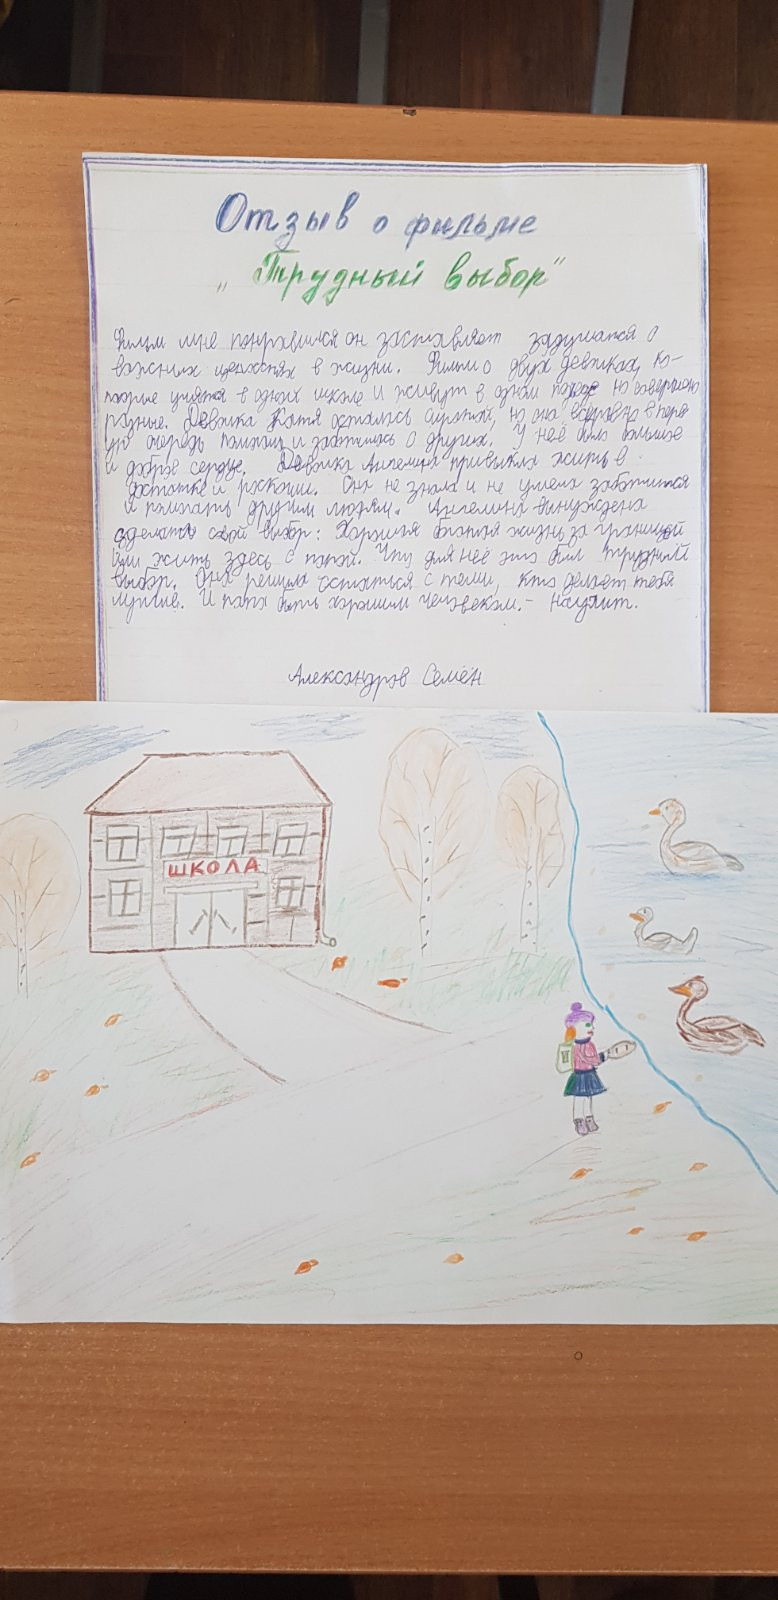 Отзыв о фильме
„Трудный выбор"
Фильм мне понравился он заставляет задуматся о
важних ценностях в жизни. Фильм о двух девочках, ко-
торые учятся в одних школе и живут в одном городе но совершено
разные. Девочка Катя осталась сиротой, но она всёравно в перв
ую очередь помогала и заботилась о других. У неё было большое
и доброе сердце. Девочка Ангелина привыкла жить в
достатке и роскоши. Она не знала и не умела заботится
и помагать другим людям. Ангелина вынуждена
сделать свой выбор: Хорошая богатая жизнь за границей
или жить здесь с папой. Что для неё это был трудный
выбор. Она решила остаться с теми, кто делает тебя
лучше. И папа быть хорошим человеком.- научит.
Александров Семён
ШКОЛА